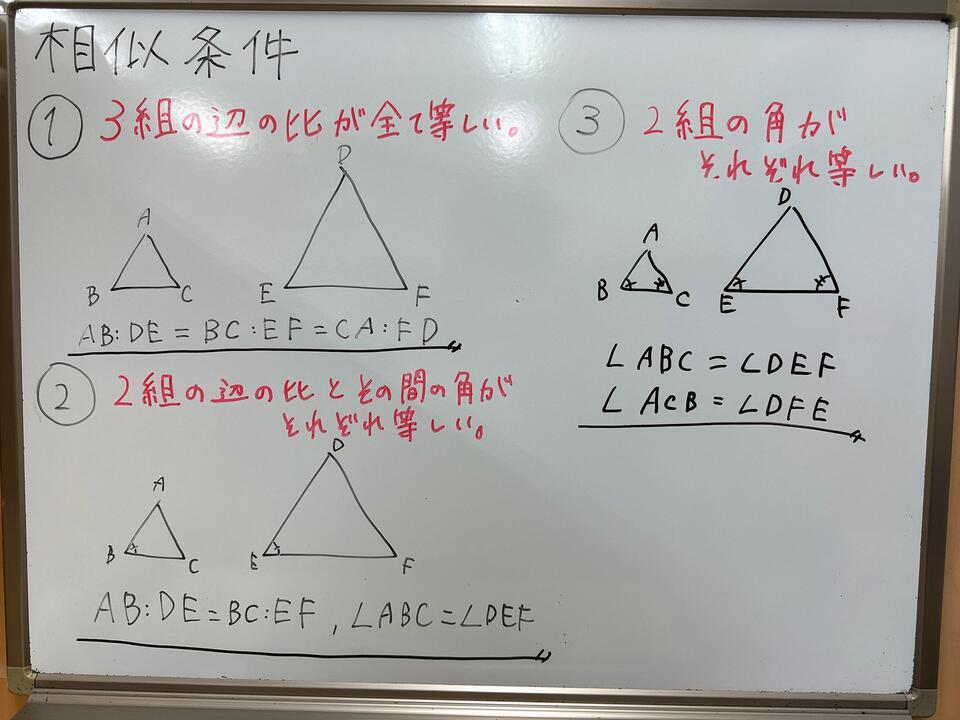 相似条件
① 3組の辺の比が全て等しい。
A
D
B
C
E
F
AB:DE=BC:EF=CA:FD
② 2組の辺の比とその間の角が
それぞれ等しい。
A
D
B
C
E
F
AB:DE=BC:EF, ∠ABC=∠DEF
③ 2組の角が
それぞれ等しい。
A
D
B
C
E
F
∠ABC=∠DEF
∠ACB=∠DFE